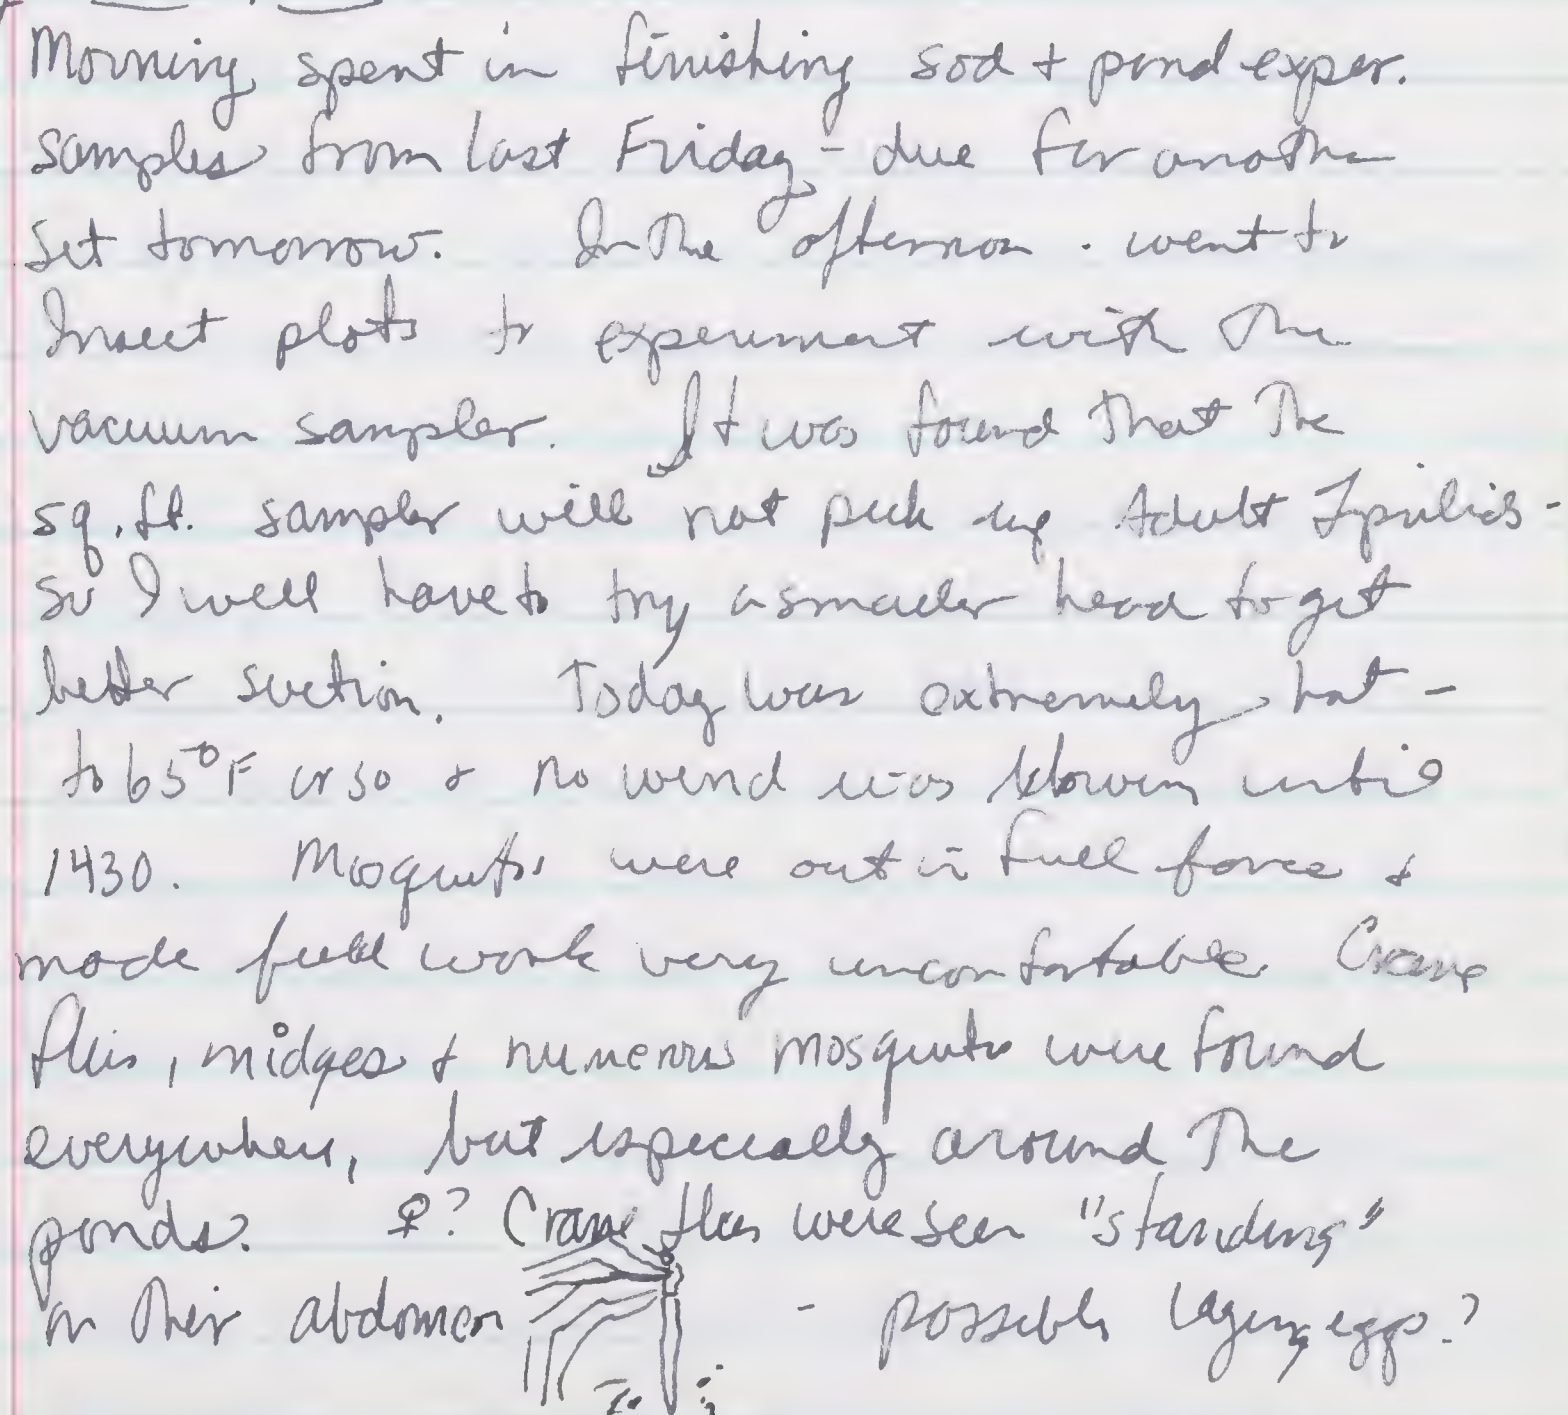 Morning spent in finishing sod + pond exper.
samples from last Friday - due for another
set tomorrow. In the afternoon - went to
Insect plots to experiment with the
vacuum sampler. It was found that the
sq. ft. sampler will not pick up Adult Tipulids -
so I will have to try a smaller head to get
better suction. Today was extremely hot -
to 65°F or so + no wind was blowing until
1430. Mosquitos were out in full force +
made field work very uncomfortable. Crane
flies, midges + numerous mosquitos were found
everywhere, but especially around the
ponds. ♀? Crane flies were seen "standing"
on their abdomen - possibly laying eggs?